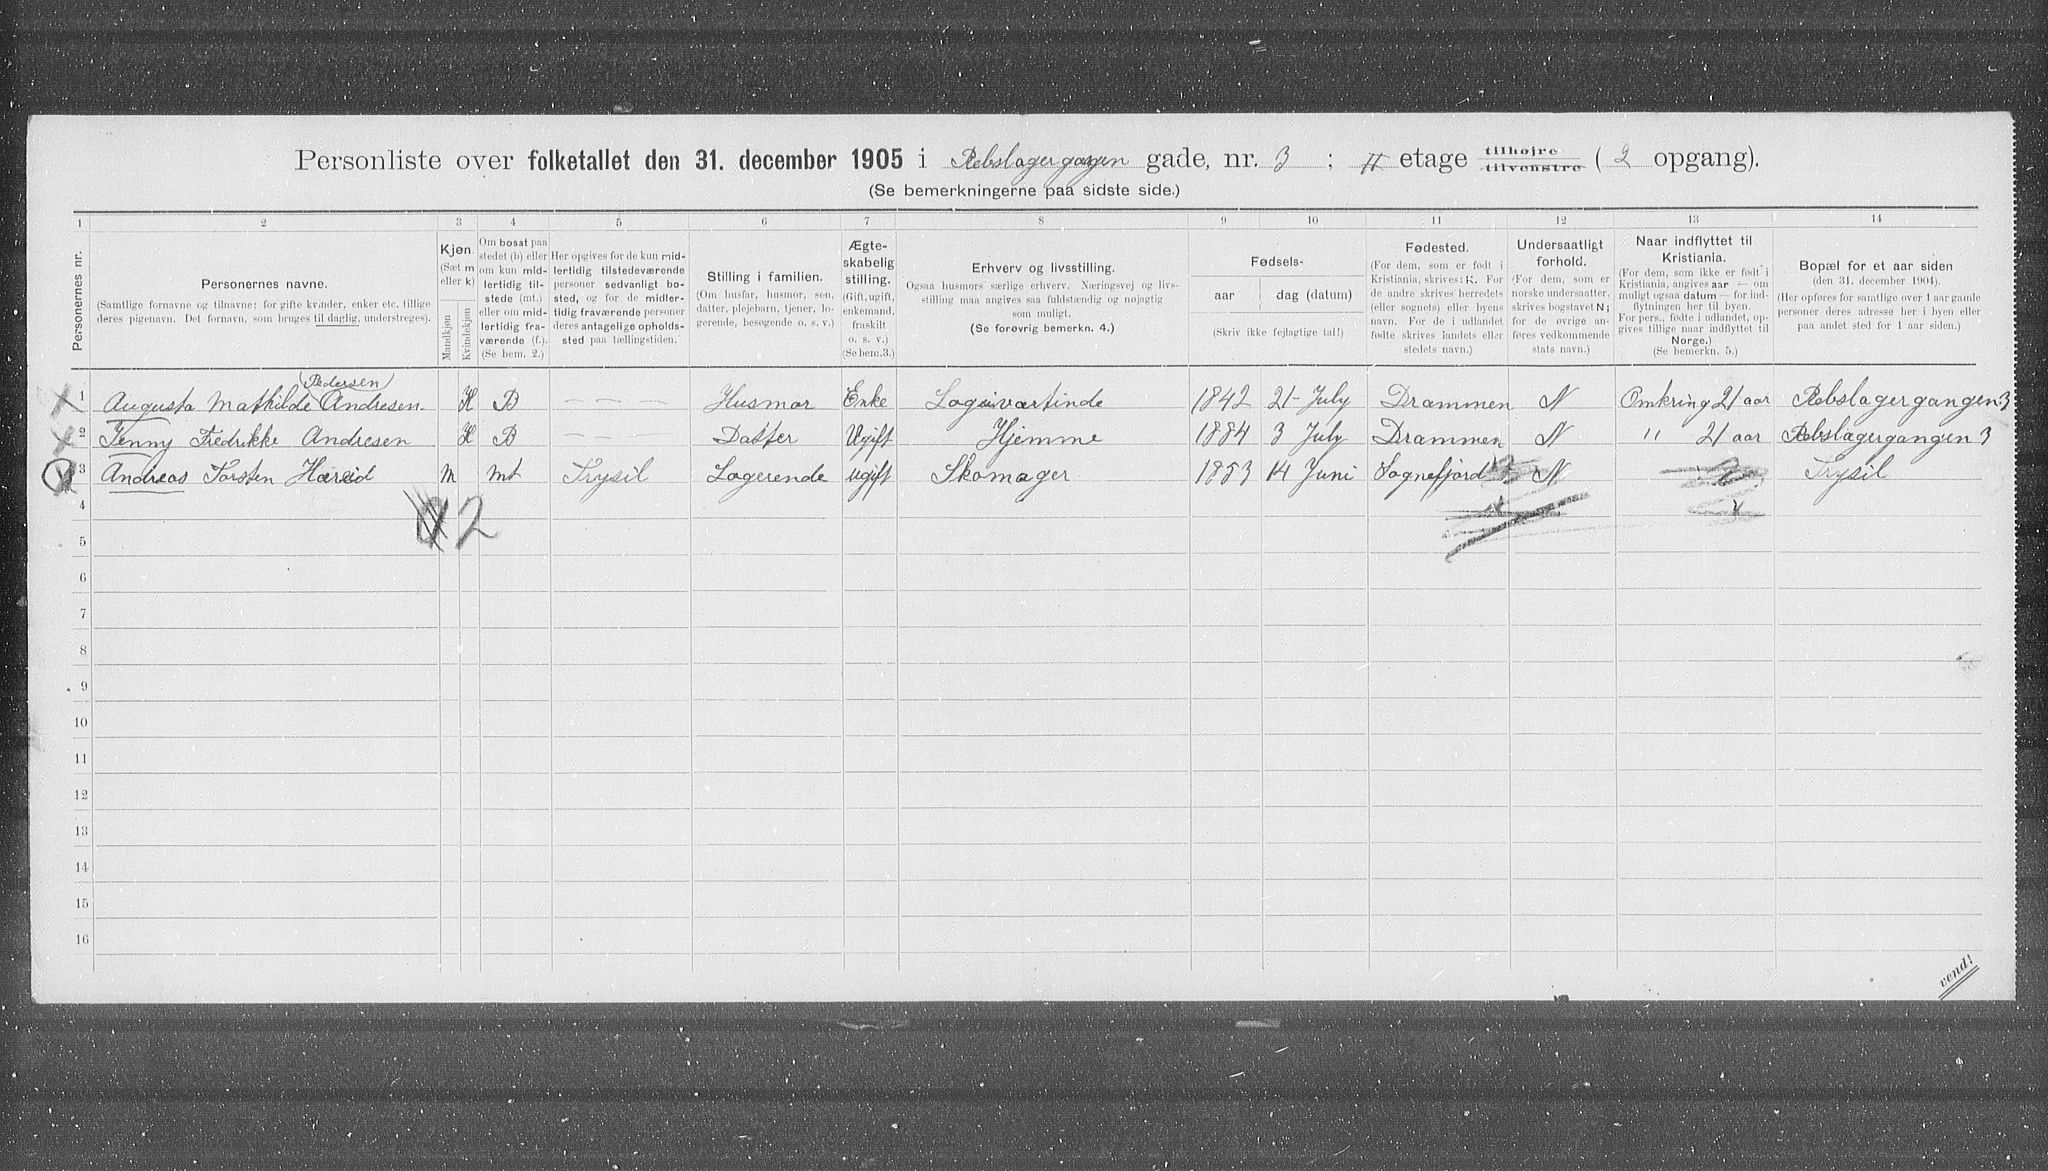 Personliste over folketallet den 31. december 1905 i Rebslagergangen gade, nr. 3 ; II etage tilhøjre tilvenstre ( 2 opgang).
(Se bemerkningerne paa sidste side.)
1 2 3 4 5 6 7 8 9 10 11 12 13 14
Personernes nr.
Personernes navne.
(Samtlige fornavne og tilnavne; for gifte kvinder, enker etc. tillige deres pigenavn. Det fornavn, som bruges til daglig, understreges).
Kjøn.
(Sæt m eller k)
Mandkjøn
Kvindekjøn
Om bosat paa stedet (b) eller om kun midlertidig tilstede (mt.) eller om midlertidig fraværende (f.). (Se bem. 2.)
Her opgives for de kun midlertidig tilstedeværende personer sedvanligt bosted, og for de midlertidig fraværende personer deres antagelige opholdssted paa tællingstiden.
Stilling i familien.
(Om husfar, husmor, søn, datter, plejebarn, tjener, logerende, besøgende o. s. v.)
Ægteskabelig stilling.
(Gift, ugift, enkemand, fraskilt o. s. v.) (Se bem.3.)
Erhverv og livsstilling.
Ogsaa husmors særlige erhverv. Næringsvej og livsstilling maa angives saa fuldstændig og nøjagtig som muligt.
(Se forøvrig bemerkn. 4.)
Fødsels-
aar
dag (datum)
(Skriv ikke fejlagtige tal!)
Fødested.
(For dem, som er født i Kristiania, skrives: K. For de andre skrives herredets (eller sognets) eller byens navn. For de i udlandet fødte skrives landets eller stedets navn.)
Undersaatligt forhold.
(For dem, som er norske undersaatter, skrives bogstavet N; for de øvrige anføres vedkommende stats navn.)
Naar indflyttet til Kristiania.
(For dem, som ikke er født i Kristiania, angives aar — om muligt ogsaa datum — for indflytningen her til byen. For pers., fødte i udlandet, opgives tillige naar indflyttet til Norge.)
(Se bemerkn. 5.)
Bopæl for et aar siden
(den 31. december 1904).
(Her opføres for samtlige over 1 aar gamle personer deres adresse her i byen eller paa andet sted for 1 aar siden.)
Pedersen
1 Augusta Mathilde Andresen K B — — — Husmor Enke Logiværtinde 1842 21 July Drammen N Omkring 21 aar Rebslagergangen 3
2 Jenny Fredrikke Andresen K B — — — Datter Ugift Hjemme 1884 3 July Drammen N " 21 aar Rebslagergangen 3
3 Andreas Torsten Hareid M mt Trysil Logerende ugift Skomager 1853 14 Juni Sognefjord N Trysil
2
4
5
6
7
8
9
10
11
12
13
14
15
16
vend!